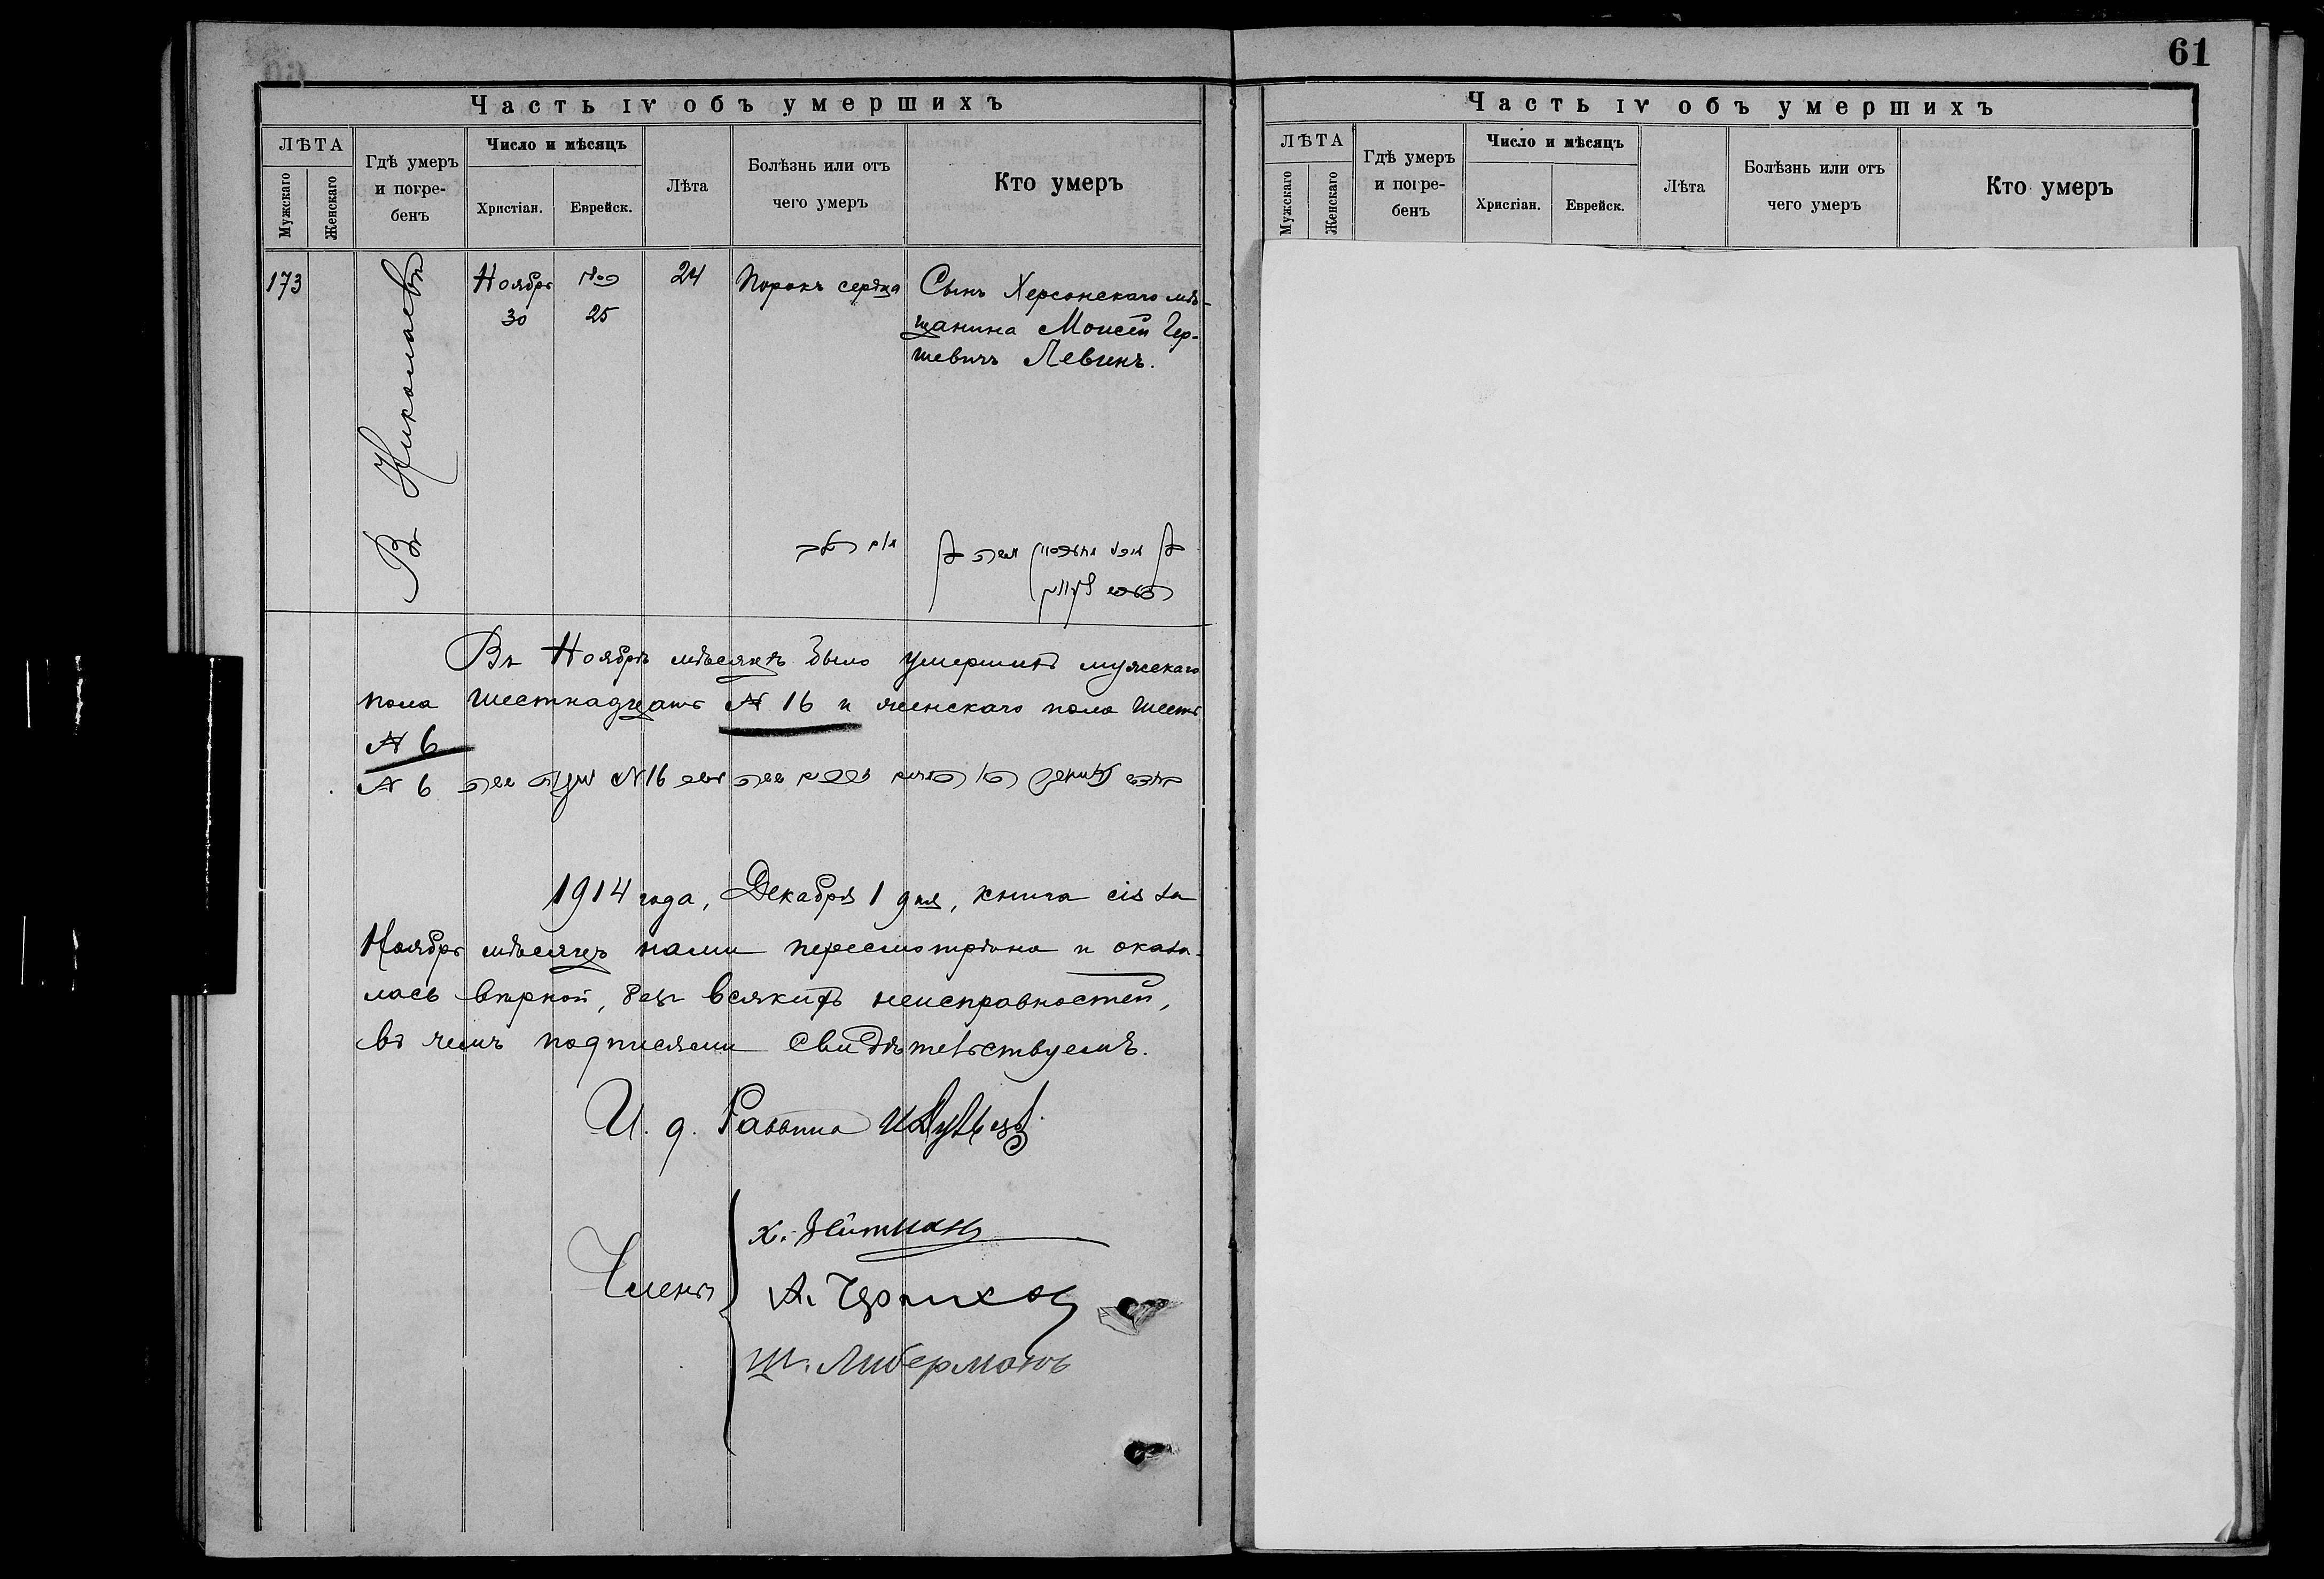 61
Часть IV объ умершихъ
ЛѢТА
Мужскаго
Женскаго
Гдѣ умеръ
и погре-
бенъ
Число и мѣсяцъ
Христіан.
Еврейск.
Лѣта
Болѣзнь или отъ
чего умеръ
Кто умеръ
173
Въ Николаевѣ
Ноябрь
30
כסלו
25
24
Порокъ сердца
Сынъ Херсонскаго мѣ-
щанина Моисей Гер-
шевичъ Левинъ.
Въ Ноябрѣ мѣсяцѣ было умершихъ мужскаго
пола шестнадцать № 16 и женскаго пола шесть
№ 6
№ 6 № 16
1914 года, Декабря 1 дня, книга сія за
Ноябрь мѣсяцъ нами пересмотрѣна и оказа-
лась вѣрной, безъ всякихъ неисправностей,
въ чемъ подписями свидѣтельствуемъ.
И. д. Раввина
Члены
Х.
А.
Ш. Либерманъ
Часть IV объ умершихъ
ЛѢТА
Мужскаго
Женскаго
Гдѣ умеръ
и погре-
бенъ
Число и мѣсяцъ
Христіан.
Еврейск.
Лѣта
Болѣзнь или отъ
чего умеръ
Кто умеръ